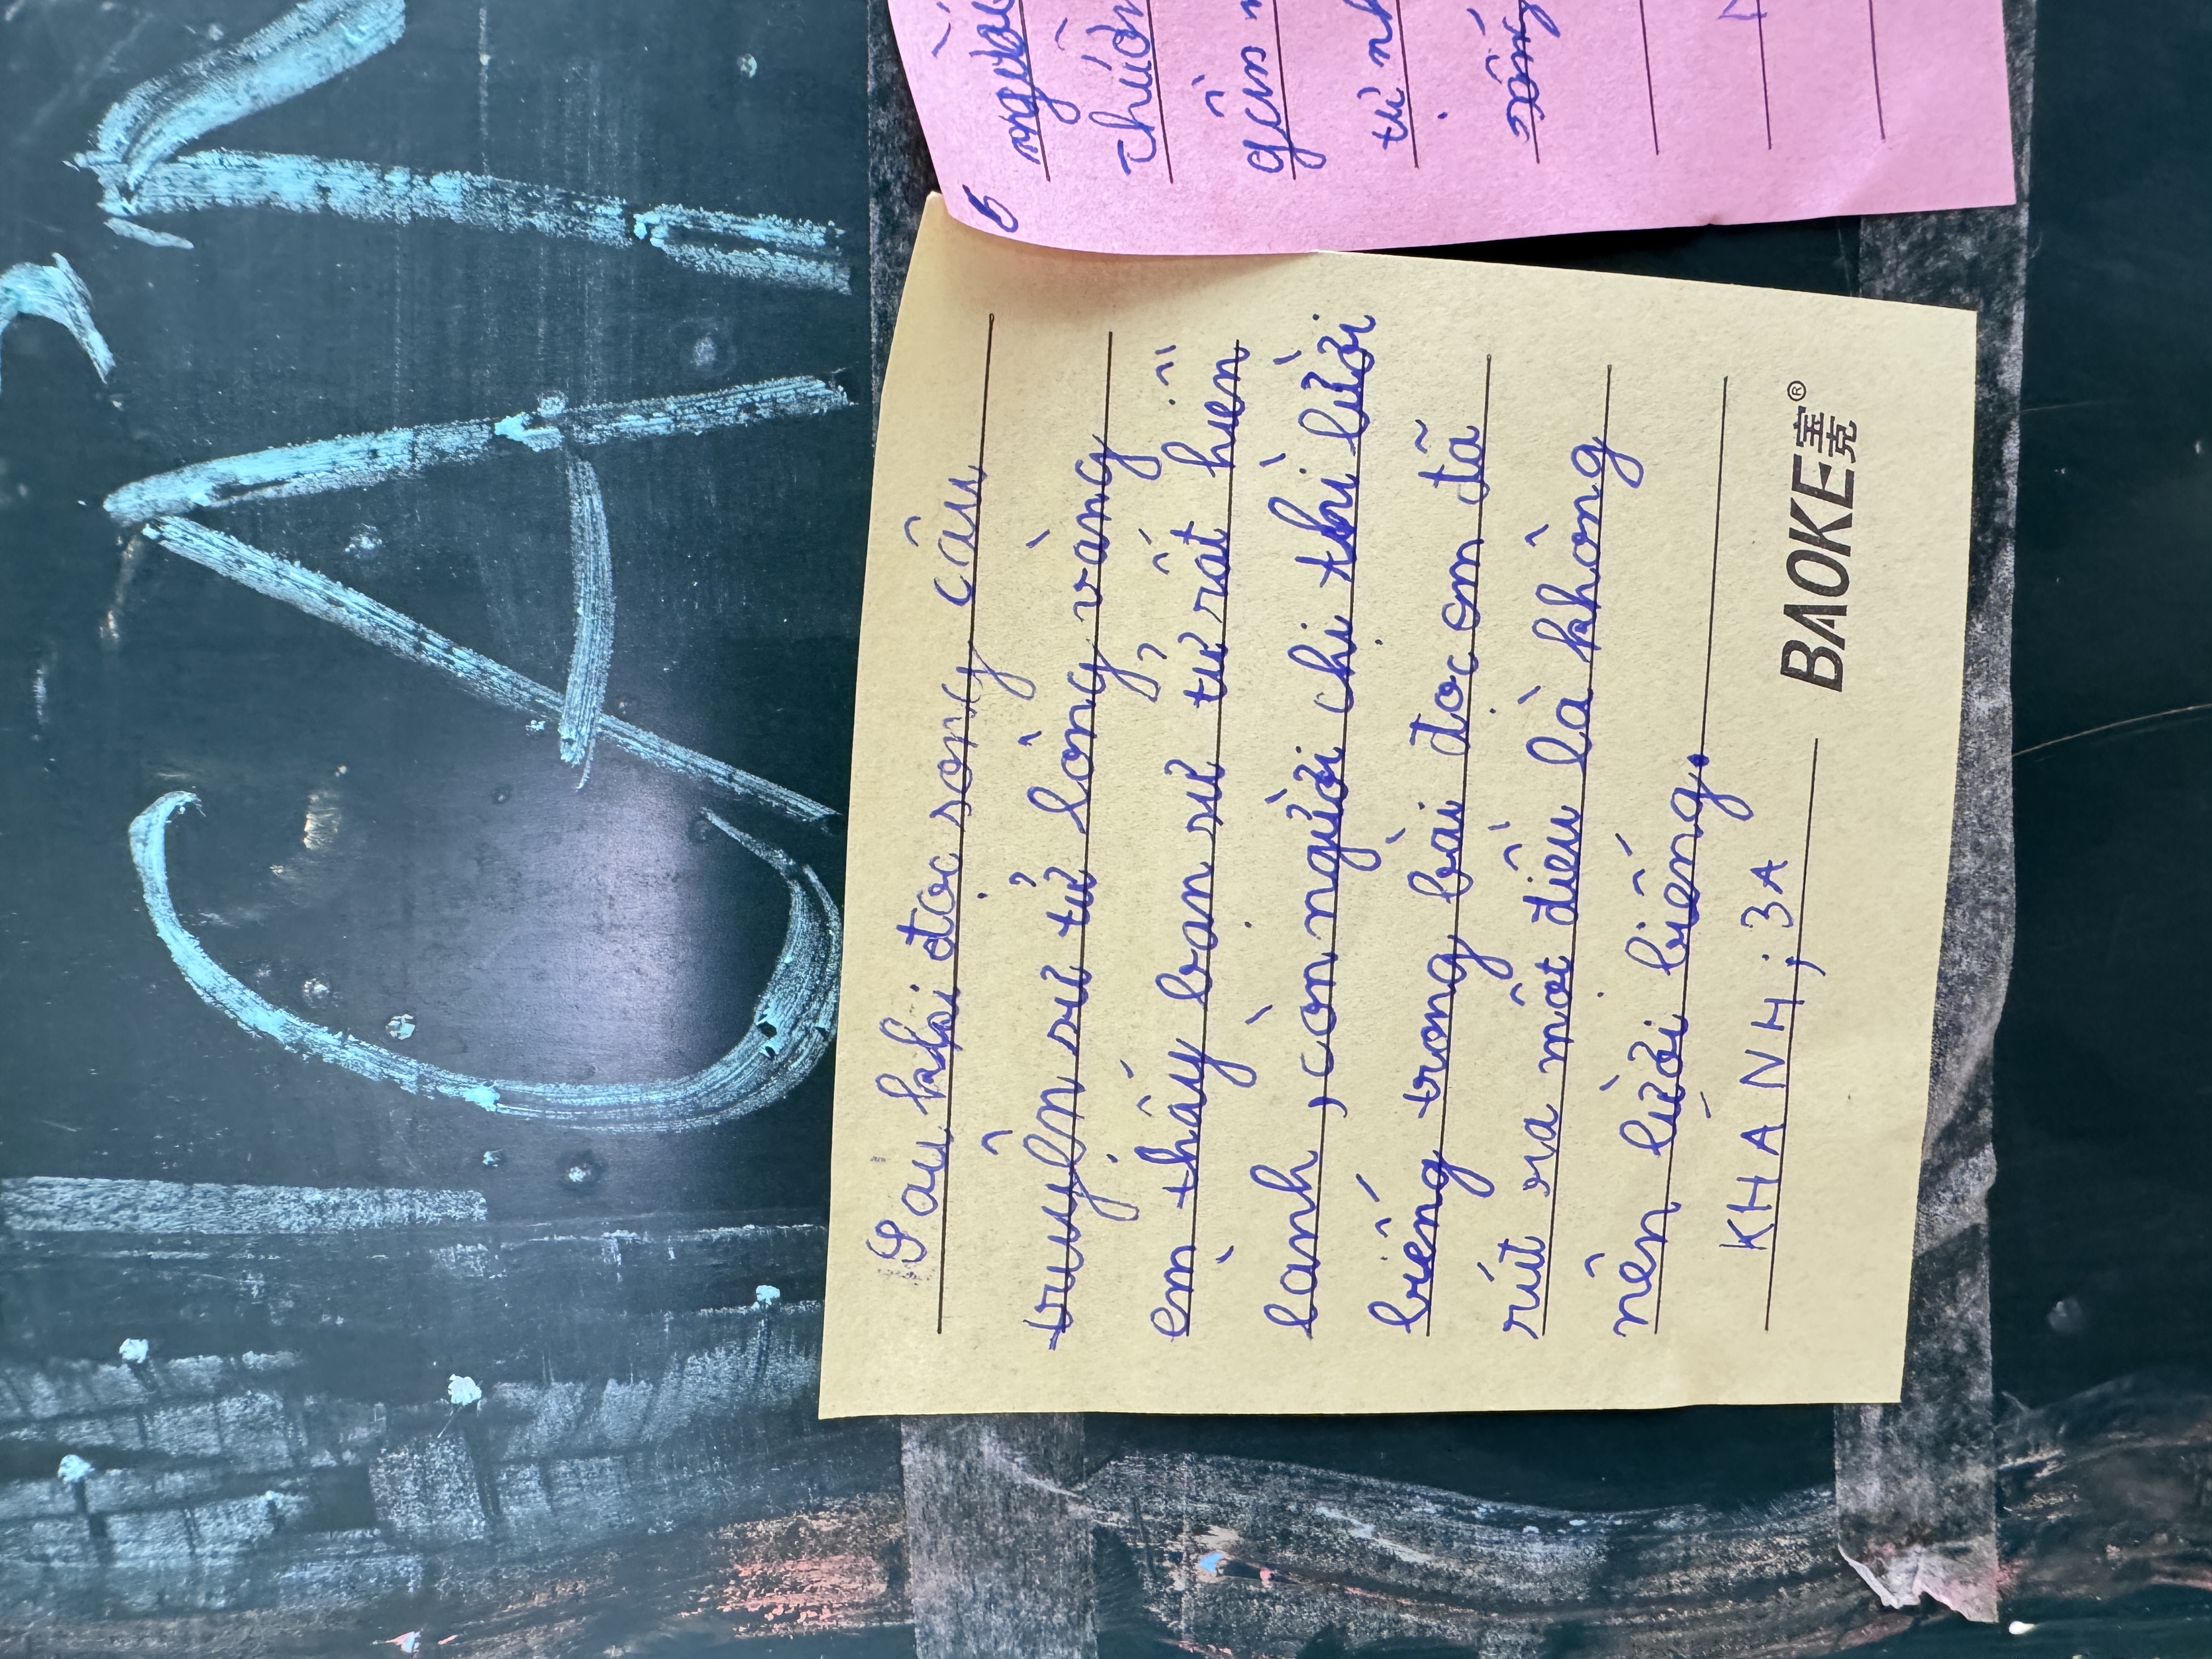 CẢM
Sau khi đọc song câu
truyện sư tử lông vàng
em thấy bạn sư tử rất hiền
lành, còn người chị thì lười
biếng trong bài đọc em đã
rút ra một điều là không
nên lười biếng.
KHÁNH; 3A
BAOKE 宝克®